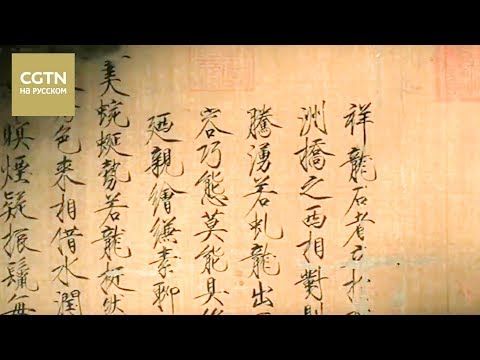 CGTN
на русском
祥龍石者立於
洲橋之西相對則
騰湧若虬龍出
容巧態莫能具
廼親繪縑素聊
美蜿蜒勢若龍挺然
色來相借水潤
暝煙疑振鬣每